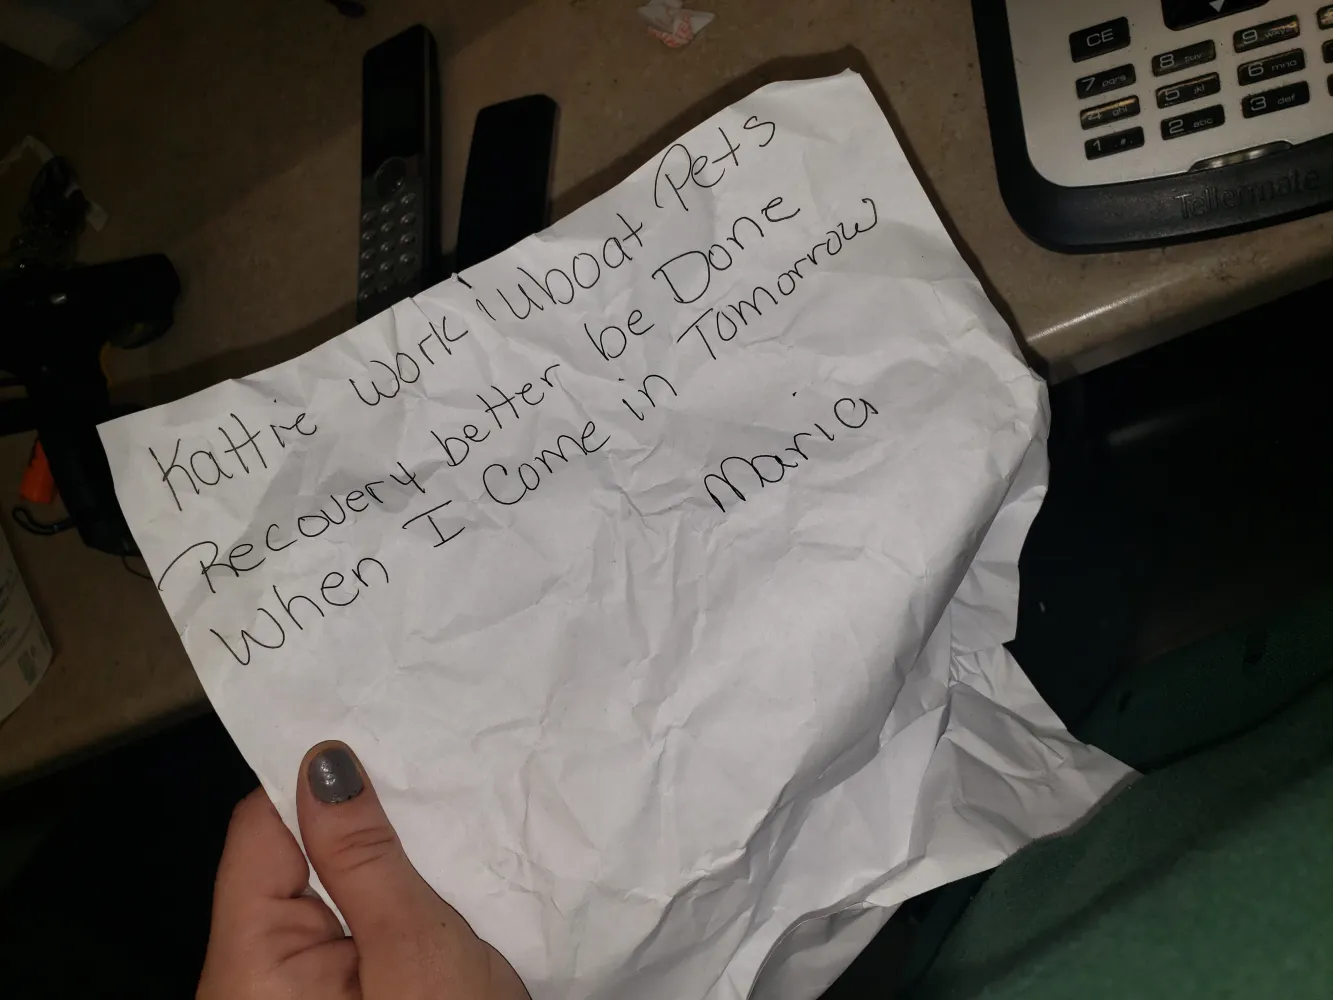 Kattie work iuboat Pets
Recovery better be Done
when I come in Tomorrow
Maria
CE
7 pqrs
8 tuv
9 wxyz
4 ghi
5 jkl
6 mno
1
2 abc
3 def
Tellermate